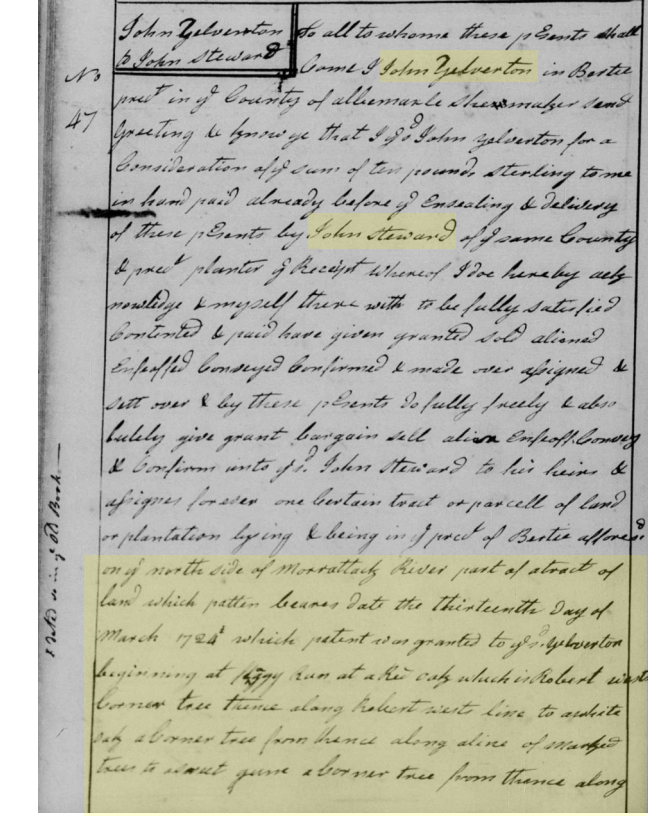 John Yelverton
to John Steward
No
47
To all to whome these pEsents shall
Come I John Yelverton in Bertie
prect in ye County of albemarle shewmaker send
Greeting & know ye that I ye sd John Yelverton for a
Consideration of ye sum of ten pounds sterling to me
in hand paid already before ye Ensealing & delivery
of these pEsents by John Steward of ye same County
& prect planter ye Receipt whereof I doe hereby ack
nowledge & myself there with to be fully satisfied
Contented & paid have given granted sold aliened
Enfeoffed Conveyed Confirmed & made over assigned &
sett over & by these pEsents do fully freely & abso
lutely give grant bargain sell alien Enfeoff Convey
& Confirm unto ye sd. John Steward to his heirs &
assignes forever one Certain tract or parcell of land
or plantation lying & being in ye prect of Bertie afforesd
on ye north side of Morrattack River part of a tract of
land which patten beares date the thirteenth Day of
March 1724 which patent was granted to ye sd. Yelverton
beginning at Run at a Red oak which is Robert wests
Corner tree thence along Robert wests line to a white
oak a Corner tree from thence along a line of marked
trees to a sweet gum a Corner tree from thence along
so in ye Old Book